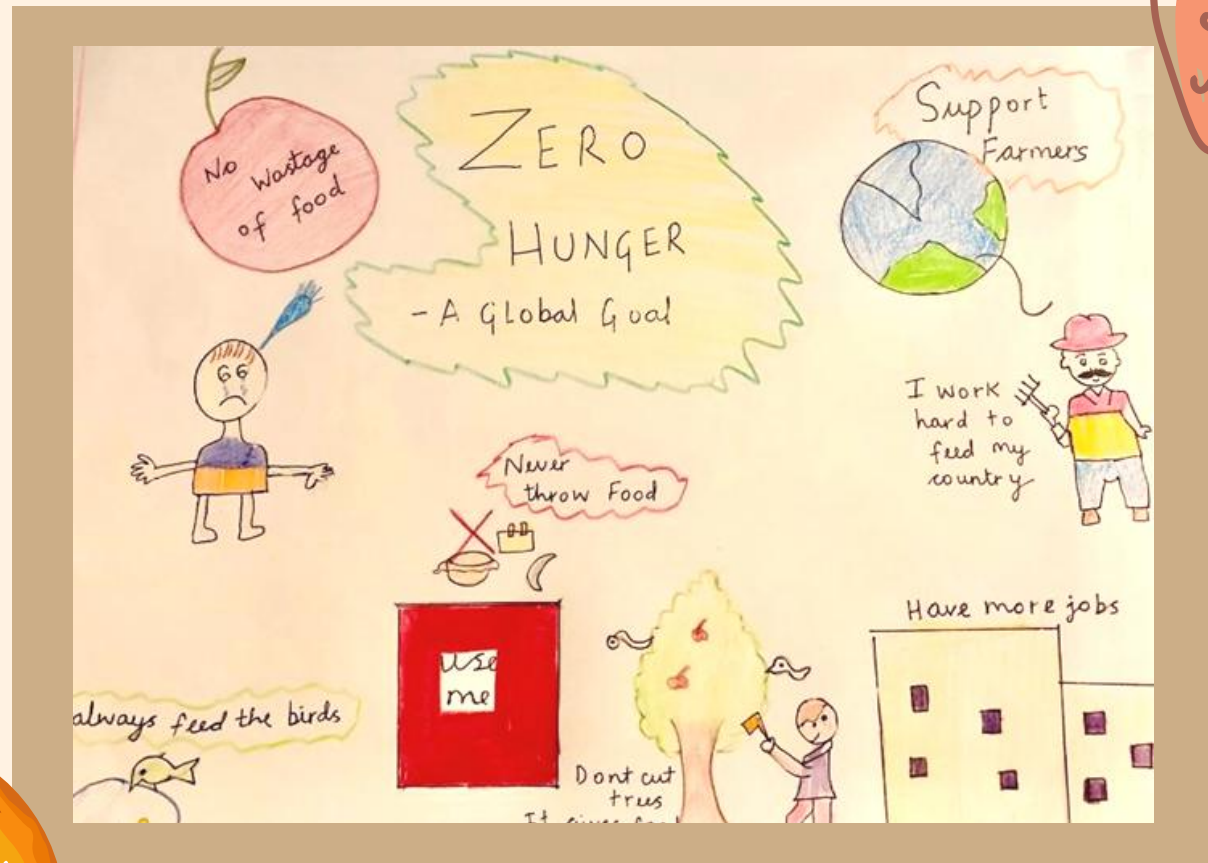 No Wastage
of food
ZERO
HUNGER
- A Global Goal
Support
Farmers
I work
hard to
feed my
country
Never
throw Food
use
me
Have more jobs
always feed the birds
Dont cut
trees
It gives